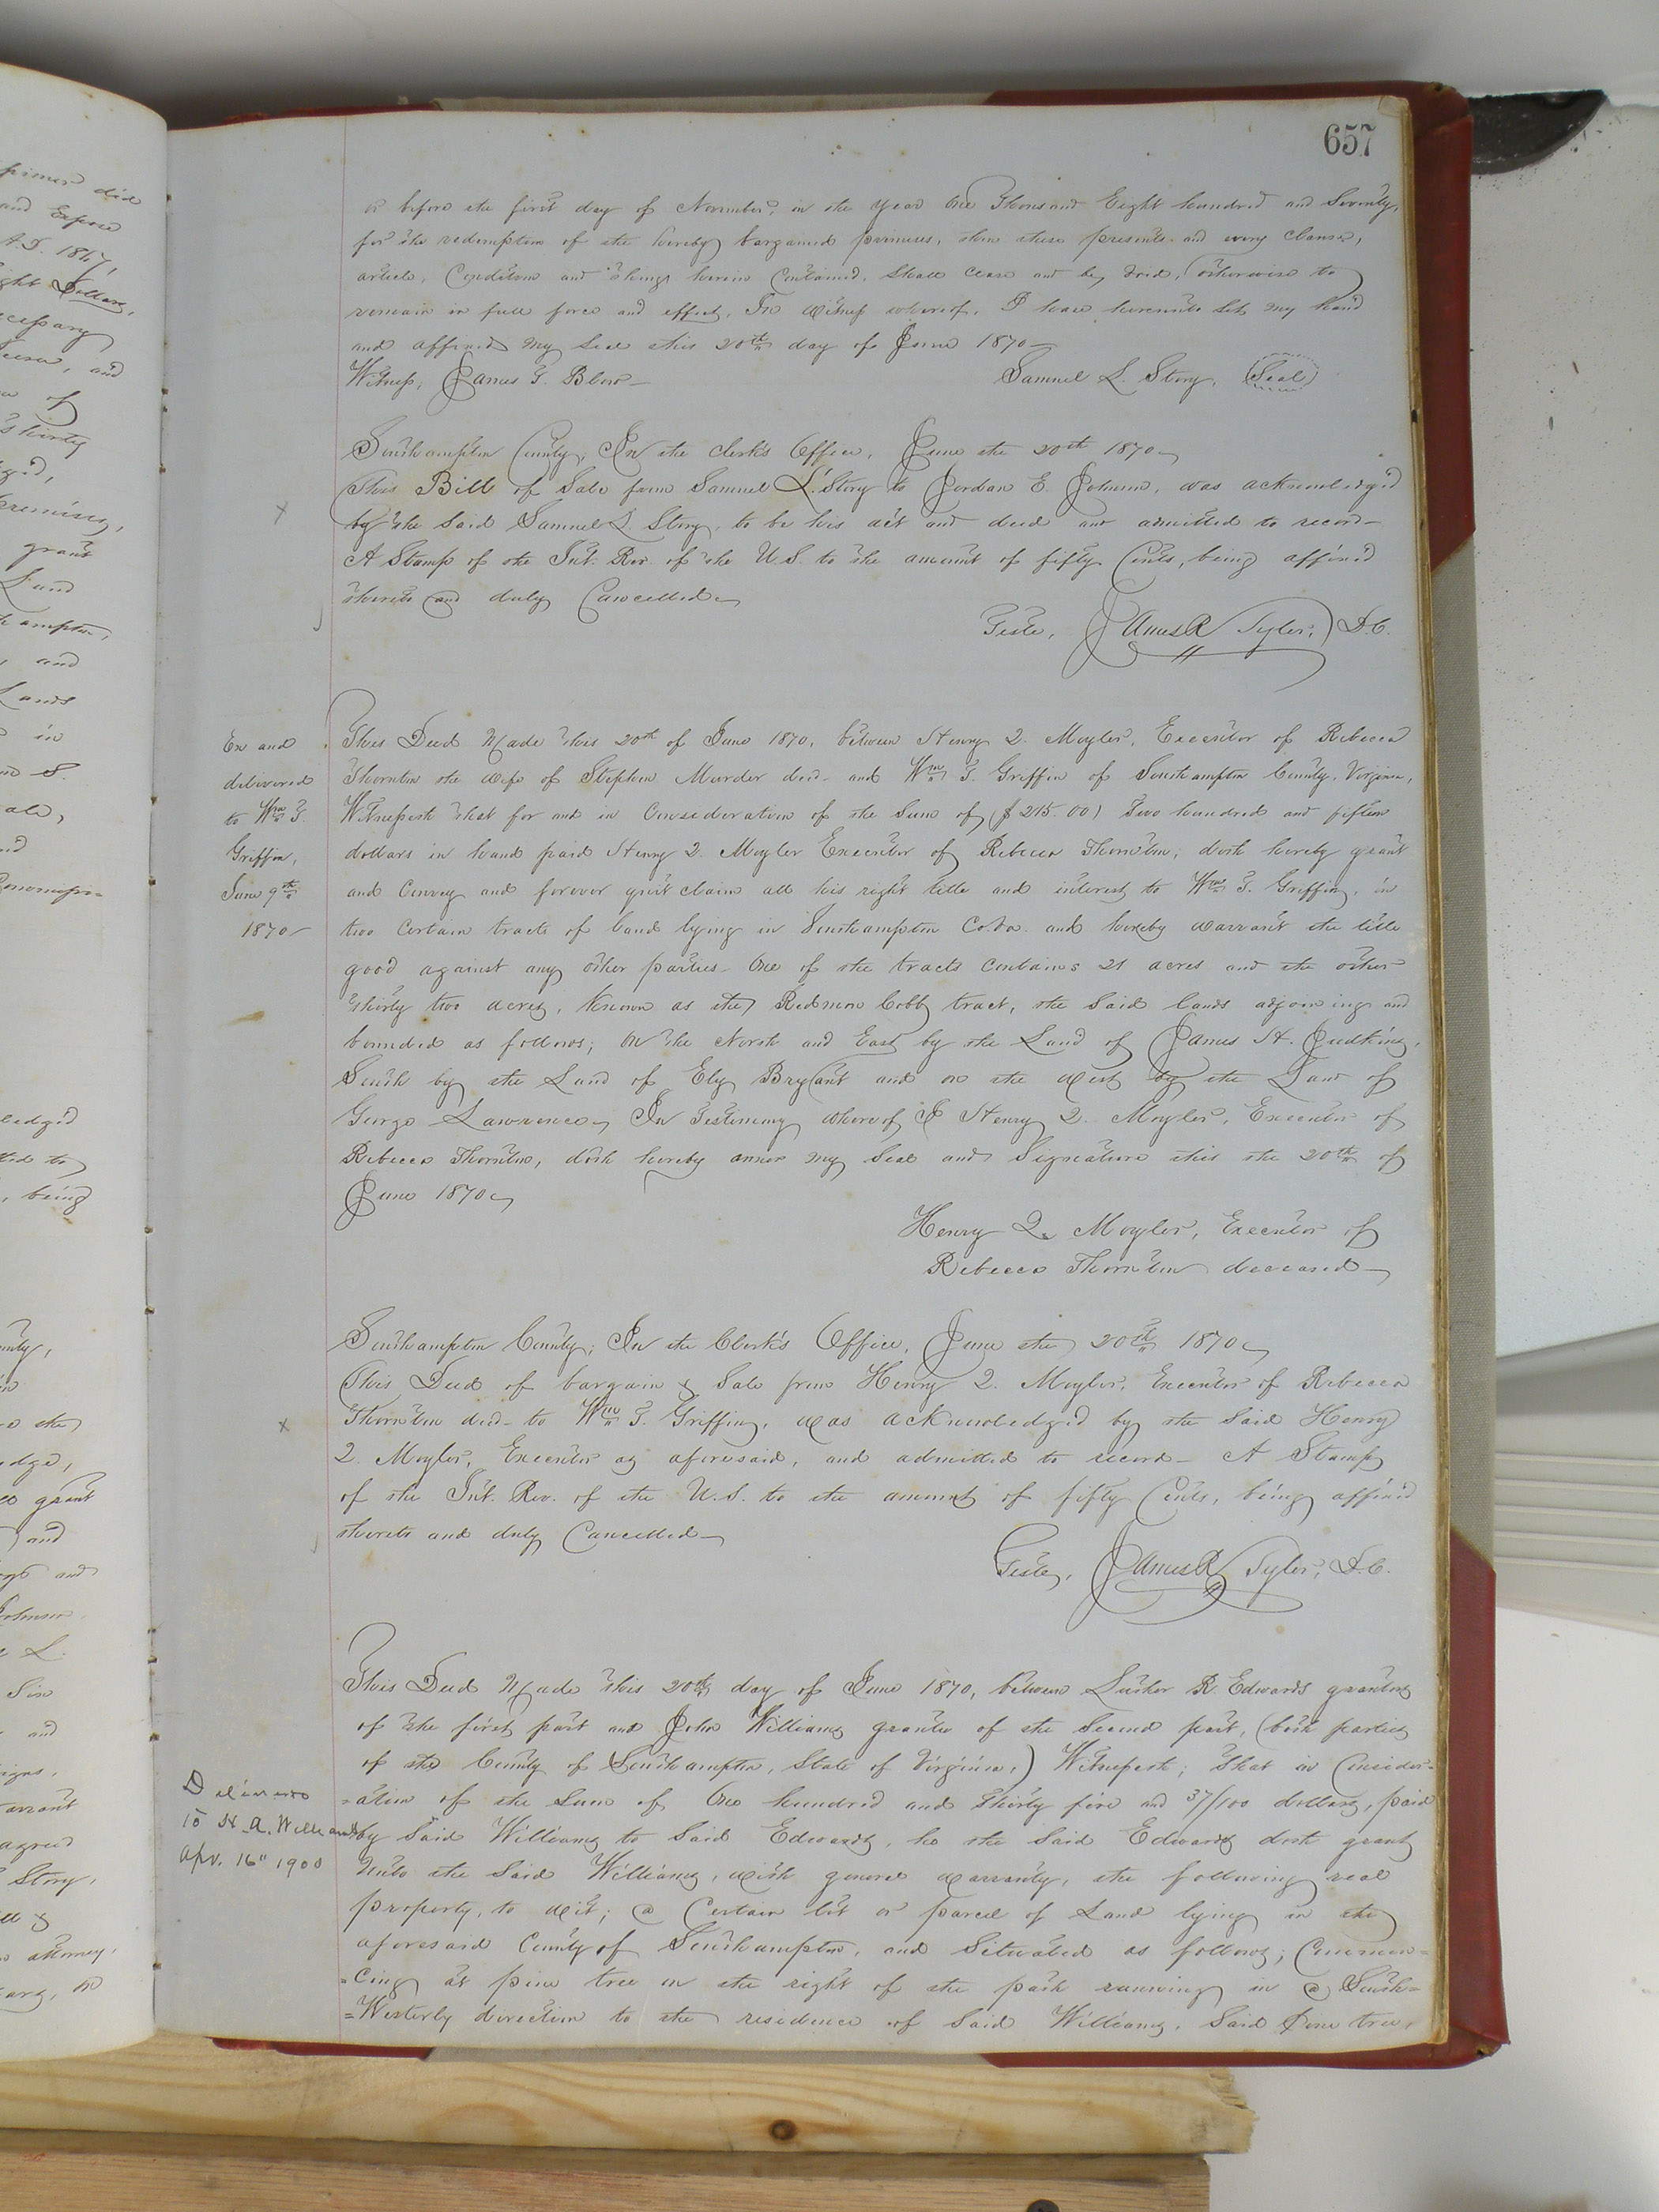 657
or before the first day of November, in the year One Thousand Eight hundred and Seventy,
for the redemption of the hereby bargained premises, then these presents and every clause,
article, Condition and things herein Contained, Shall Cease and be Void, otherwise to
remain in full force and effect, In Witness whereof, I have hereunto Set my hand
and affixed my Seal this 20th day of June 1870
Witness, James T. Blow
Samuel L. Story, (Seal)
Southampton County, In the Clerk's Office, June the 20th 1870
This Bill of Sale from Samuel L. Story to Jordan E. Johnson, was acknowledg'd
by the Said Samuel L. Story, to be his act and deed and admitted to record
A Stamp of the Int. Rev. of the U.S. to the amount of fifty Cents, being affix'd
thereto and duly Cancelled
Teste, James R Tyler, D.C.
Ex and
delivered
to Wm T.
Griffin,
June 9th
1870
This Deed Made this 20th of June 1870, between Henry Q. Moyler, Executor of Rebecca
Thornton the wife of Stephen Murder decd. and Wm T. Griffin of Southampton County, Virginia,
Witnesseth that for and in Consideration of the Sum of ($215.00) Two hundred and fifteen
dollars in hand paid Henry Q. Moyler Executor of Rebecca Thornton, doth hereby grant
and Convey and forever quit claim all his right title and interest to Wm T. Griffin, in
two Certain tracts of land lying in Southampton Co. Va. and hereby warrant the title
good against any other parties. One of the tracts Contains 21 acres and the other
thirty two acres, Known as the Redmon Cobb tract, the Said lands adjoining and
bounded as follows; On the North and East by the Land of James H. Judkins,
South by the Land of Ely Bryant and on the West by the Land of
George Lawrence, In Testimony whereof I Henry Q. Moyler, Executor of
Rebecca Thornton, doth hereby annex my Seal and Signature this the 20th of
June 1870
Henry Q. Moyler, Executor of
Rebecca Thornton deceased
Southampton County; In the Clerk's Office, June the 20th 1870
This Deed of bargain & Sale from Henry Q. Moyler, Executor of Rebecca
Thornton decd. to Wm T. Griffin, was acknowledged by the Said Henry
Q. Moyler, Executor as aforesaid, and admitted to record. A Stamp
of the Int. Rev. of the U.S. to the amount of fifty Cents, being affix'd
thereto and duly Cancelled
Teste, James R Tyler, D.C.
Delivered
to H. A. Williams
Apr. 16" 1900
This Deed Made this 20th day of June 1870, between Luther R. Edwards grantor
of the first part and John Williams grantee of the Second part, (both parties
of the County of Southampton, State of Virginia,) Witnesseth; That in Consider-
=ation of the Sum of One hundred and Thirty five and 37/100 dollars, paid
by Said Williams to Said Edwards, he the Said Edwards doth grant
Unto the Said Williams, with general warranty, the following real
property, to wit; a Certain lot or parcel of Land lying in the
aforesaid County of Southampton, and Situated as follows; Commen=
=cing at pine tree on the right of the path running in a South=
=Westerly direction to the residence of Said Williams, Said Pine tree,